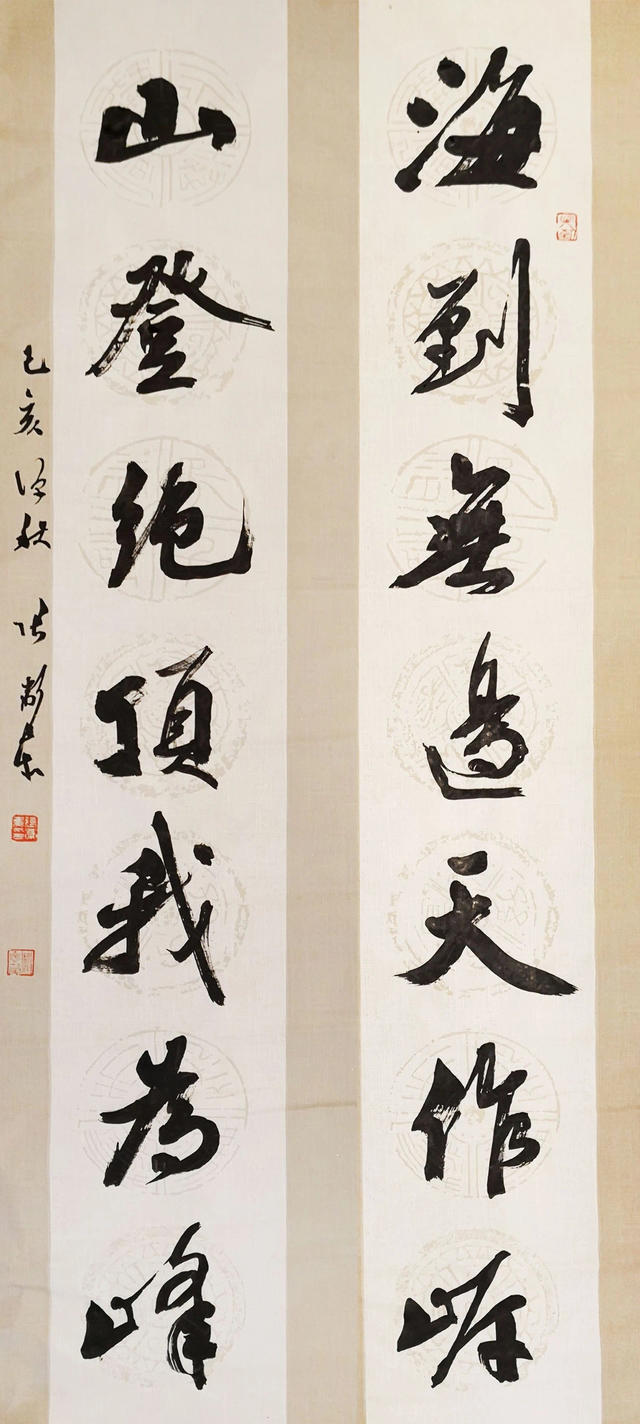 海到無邊天作岸
山登絶頂我為峰
己亥深秋 张